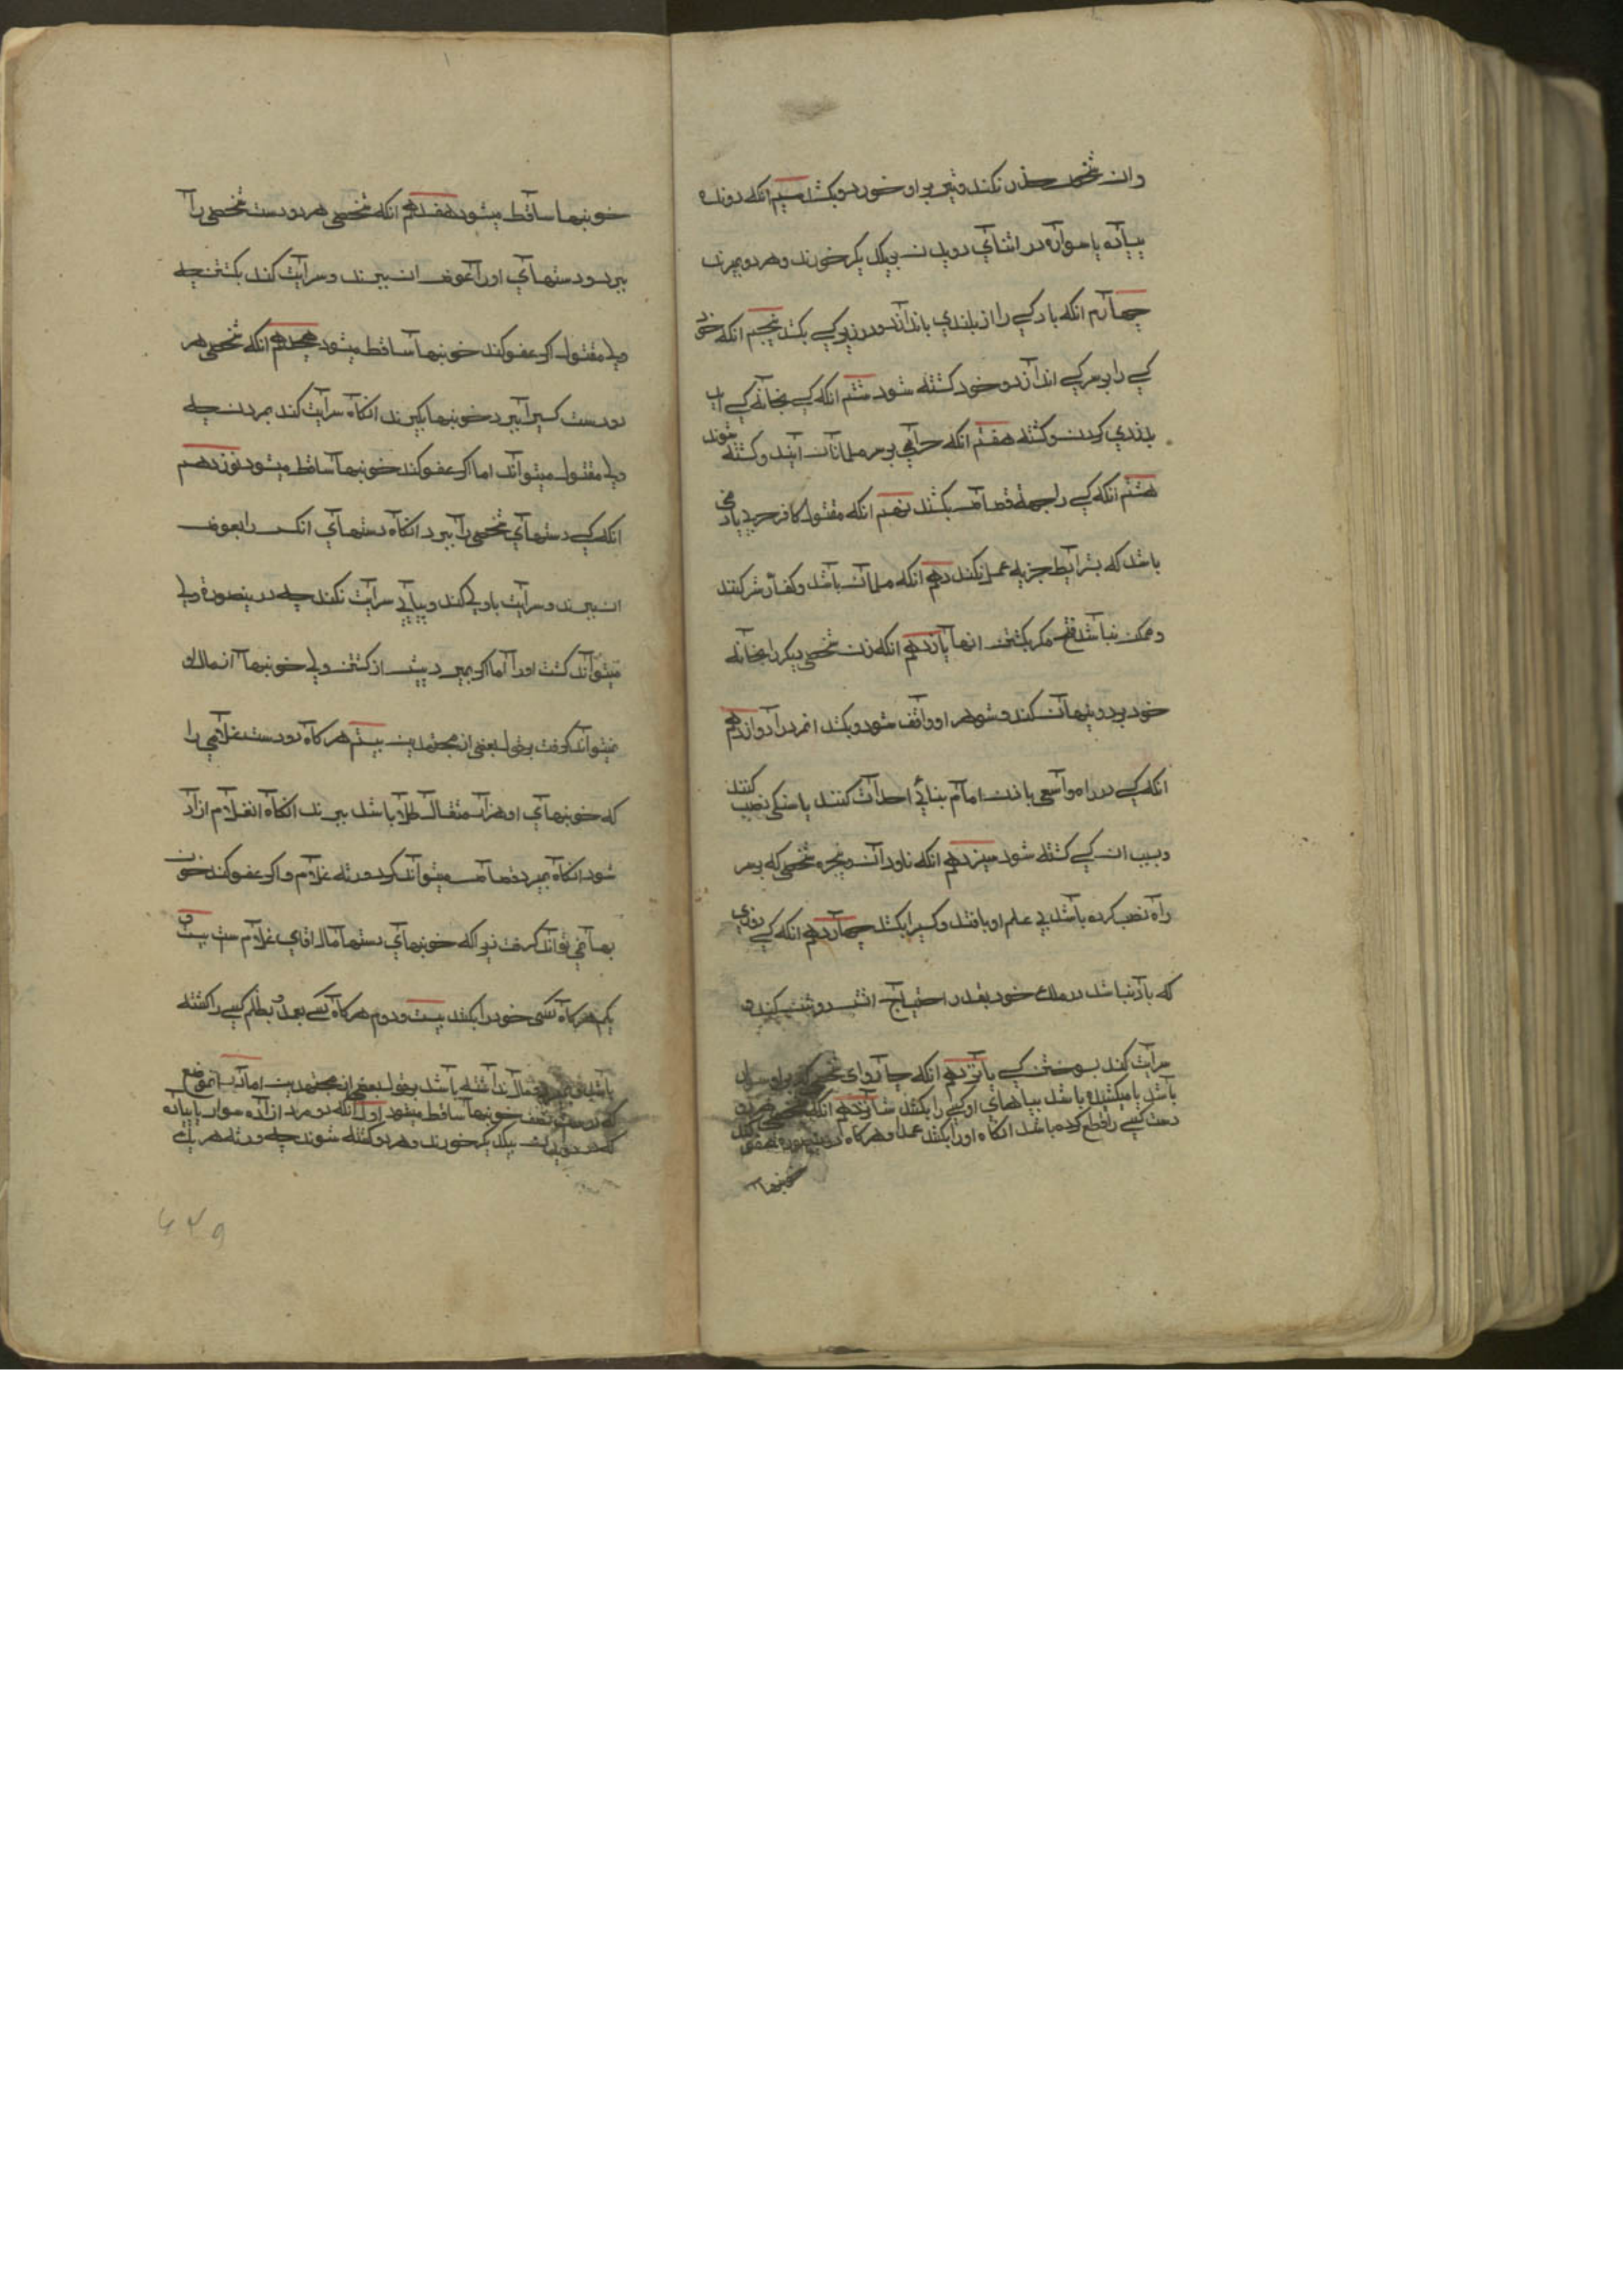 وان شخص حذر نکند و تیر بر او خورد و بکشد سیم انکه دونده
پیاده یا سواره در اثنای دویدن بیکدیکر خورند و هر دو بمیرند
چهارم انکه باد کسی را از بلندی باندازد و در زیر کسی بکشد پنجم انکه خود
کسی را بر سر کسی اندازد و خود کشته شود ششم انکه کسی بخانه کسی اید
بدزدی کردن و کشته شود هفتم انکه حرامی بر سر مسلمانان ایند و کشته شوند
هشتم انکه کسی را بجهة قصاص بکشند نهم انکه مقتول کافر حربی یا ذمی
باشد که بشرایط جزیه عمل نکند دهم انکه مسلمان باشد و کفار سپر کنند
و ممکن نباشد فتح مکر بکشتن انها یازدهم انکه زن شخصی دیکر را بخانه
خود برد و پنهان کند و شوهر او واقف شود و بکشد انمرد را دوازدهم
انکه کسی در راه واسعی باذن امام بنائی احداث کنند یا سنکی نصب کنند
و بسبب ان کسی کشته شود سیزدهم انکه ناودان و پنجره شخصی که بر سر
راه نصب کرده باشد بی علم او بافتد و کسیرا بکشد چهاردهم انکه کسی روزی
که باد نباشد در ملک خود بقدر احتیاج اتش روشن کند و
سرایت کند بسوختن کسی پانزدهم انکه چاروای شخصی که بر او سوار
باشد یا میکشیده باشد بپاهای او کسی را بکشد شانزدهم انکه شخصی هر دو
دست کسی را قطع کرده باشد انکاه او را بکشد عمدا و هرکاه درینصورة عفو کند
خونبها
خونبها ساقط میشود هفدهم انکه شخصی هر دو دست شخصی را
ببرد و دستهای او را عوض ان ببرند و سرایت کند بکشتن چه
ولی مقتول اکر عفو کند خونبها ساقط میشود هجدهم انکه شخصی هر
دو دست کسیرا ببرد خونبها بکیرند انکاه سرایت کند بمردن چه
ولی مقتول میتواند اما اکر عفو کند خونبها ساقط میشود نوزدهم
انکه کسی دستهای شخصی را ببرد انکاه دستهای انکس را بعوض
ان ببرند و سرایت باولی کند و بثانی سرایت نکند چه درینصورة ولی
میتواند کشت او را اما اکر بمیرد پیش از کشتن ولی خونبها از مال او
نمیتواند کرفت بقول بعضی از مجتهدین بیستم هرکاه دو دست غلامی را
که خونبهای او هزار مثقال طلا باشد ببرند انکاه انغلام ازاد
شود انکاه بمیرد قصاص میتواند کرد ورثه غلام و اکر عفو کند خون
بها نمی تواند کرفت زیرا که خونبهای دستها مال اقای غلام ست بیست و
یکم هرکاه کسی خود را بکشد بیست و دوم هرکاه کسی بعمد و بظلم کسی را کشته
باشد و مال نداشته باشد بقول بعضی از مجتهدین اما در انموضع
که نصف خونبها ساقط میشود اول انکه دو مرد ازاده سوار یا پیاده
که در دویدن بیکدیکر خورند و هر دو کشته شوند چه ورثه هر یک
۶۲۹